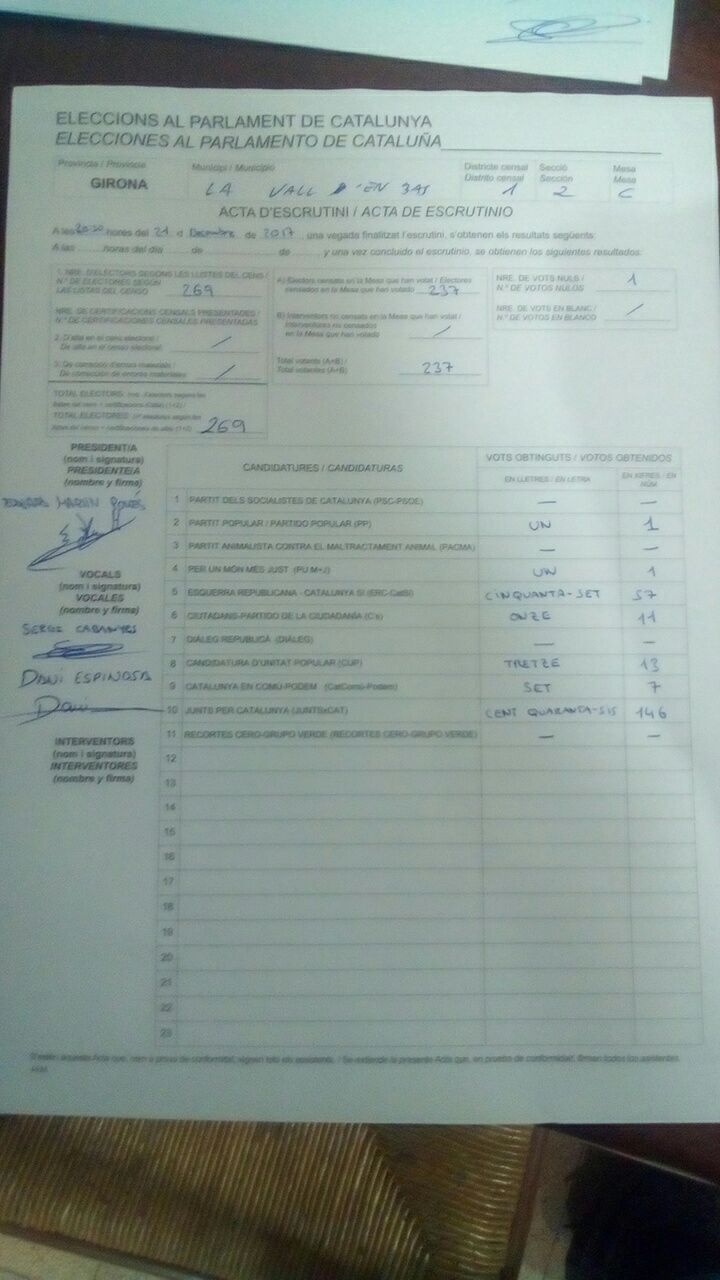 ELECCIONS AL PARLAMENT DE CATALUNYA
ELECCIONES AL PARLAMENTO DE CATALUÑA
Província / Provincia Municipi / Municipio Districte censal Secció Mesa
Distrito censal Sección Mesa
GIRONA LA VALL D'EN BAS 1 2 C
ACTA D'ESCRUTINI / ACTA DE ESCRUTINIO
A les 20:20 hores del 21 d Desembre de 2017, una vegada finalitzat l'escrutini, s'obtenen els resultats següents:
A las horas del día de de y una vez concluido el escrutinio, se obtienen los siguientes resultados:
1. NRE. D'ELECTORS SEGONS LES LLISTES DEL CENS /
N.º DE ELECTORES SEGÚN
LAS LISTAS DEL CENSO 269
NRE. DE CERTIFICACIONS CENSALS PRESENTADES /
N.º DE CERTIFICACIONES CENSALES PRESENTADAS
2. D'alta en el cens electoral /
De alta en el censo electoral: /
3. De correcció d'errors materials /
De corrección de errores materiales /
TOTAL ELECTORS
TOTAL ELECTORES 269
A) Electors censats en la Mesa que han votat / Electores
censados en la Mesa que han votado 237
B) Interventors no censats en la Mesa que han votat /
Interventores no censados
en la Mesa que han votado /
Total votants (A+B) /
Total votantes (A+B) 237
NRE. DE VOTS NULS /
N.º DE VOTOS NULOS 1
NRE. DE VOTS EN BLANC /
N.º DE VOTOS EN BLANCO /
PRESIDENT/A
(nom i signatura)
PRESIDENTE/A
(nombre y firma)
MARTIN
VOCALS
(nom i signatura)
VOCALES
(nombre y firma)
SERGI CABANYES
DANI ESPINOSA
Dani
INTERVENTORS
(nom i signatura)
INTERVENTORES
(nombre y firma)
CANDIDATURES / CANDIDATURAS VOTS OBTINGUTS / VOTOS OBTENIDOS
EN LLETRES / EN LETRA EN XIFRES / EN NÚM.
1 PARTIT DELS SOCIALISTES DE CATALUNYA (PSC-PSOE) — —
2 PARTIT POPULAR / PARTIDO POPULAR (PP) UN 1
3 PARTIT ANIMALISTA CONTRA EL MALTRACTAMENT ANIMAL (PACMA) — —
4 PER UN MÓN MÉS JUST (PUM+J) UN 1
5 ESQUERRA REPUBLICANA - CATALUNYA SÍ (ERC-CatSí) CINQUANTA-SET 57
6 CIUTADANS-PARTIDO DE LA CIUDADANÍA (C's) ONZE 11
7 DIÀLEG REPUBLICÀ (DIÀLEG) — —
8 CANDIDATURA D'UNITAT POPULAR (CUP) TRETZE 13
9 CATALUNYA EN COMÚ-PODEM (CatComú-Podem) SET 7
10 JUNTS PER CATALUNYA (JUNTSxCAT) CENT QUARANTA-SIS 146
11 RECORTES CERO-GRUPO VERDE (RECORTES CERO-GRUPO VERDE) — —
12
13
14
15
16
17
18
19
20
21
22
23
la present Acta que, com a prova de conformitat, signen tots els assistents. / Se extiende la presente Acta que, en prueba de conformidad, firman todos los asistentes.